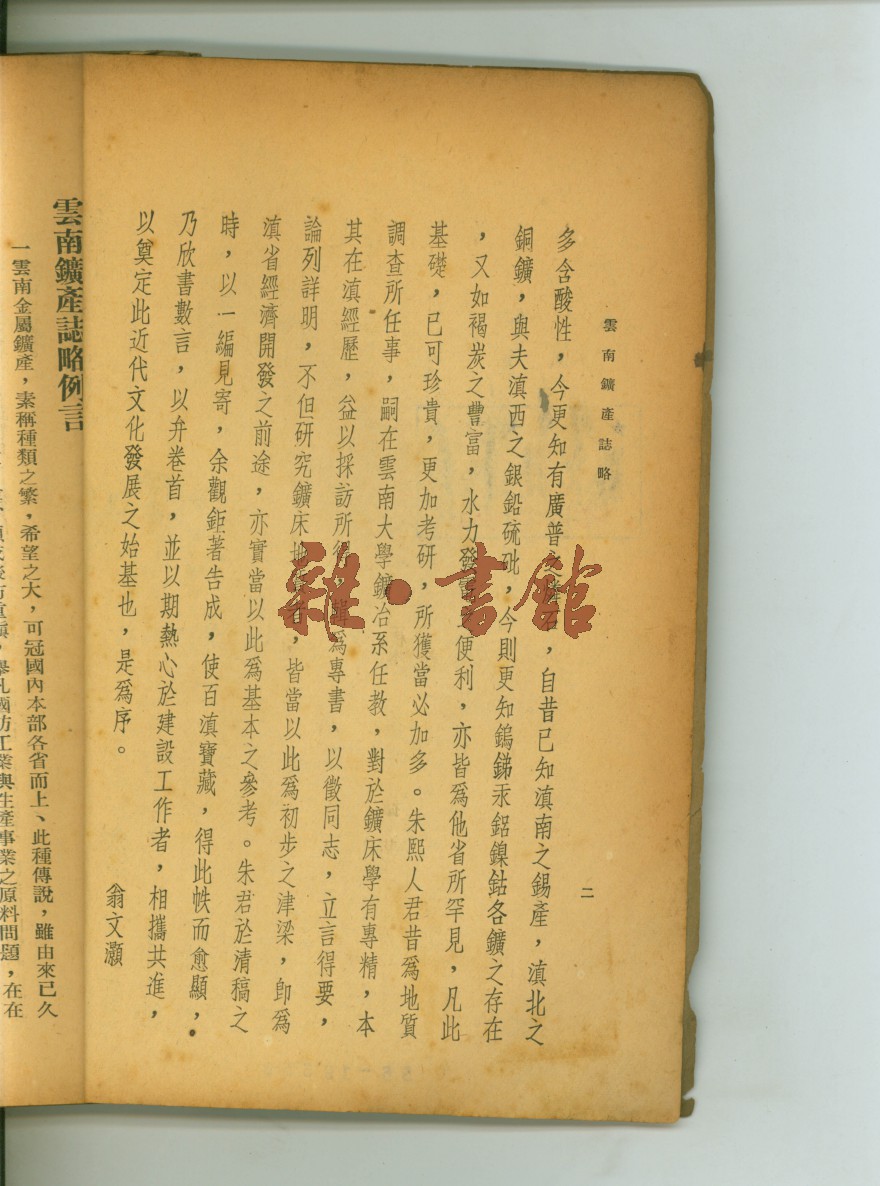 雲南鑛產誌略
二
多含酸性，今更知有廣普之石，自昔已知滇南之錫產，滇北之
銅鑛，與夫滇西之銀鉛硫砒，今則更知鎢銻汞鋁鎳鈷各鑛之存在
，又如褐炭之豐富，水力發之便利，亦皆爲他省所罕見，凡此
基礎，已可珍貴，更加考研，所獲當必加多。朱熙人君昔爲地質
調查所任事，嗣在雲南大學鑛冶系任教，對於鑛床學有專精，本
其在滇經歷，益以採訪所得，輯爲專書，以徵同志，立言得要，
論列詳明，不但研究鑛床地者，皆當以此爲初步之津梁，卽爲
滇省經濟開發之前途，亦實當以此爲基本之參考。朱君於清稿之
時，以一編見寄，余觀鉅著告成，使百滇寶藏，得此帙而愈顯，
乃欣書數言，以弁卷首，並以期熱心於建設工作者，相攜共進，
以奠定此近代文化發展之始基也，是爲序。
翁文灝
雲南鑛產誌略例言
一雲南金屬鑛產，素稱種類之繁，希望之大，可冠國內本部各省而上、此種傳說，雖由來已久
國防工業與生產事業之原料問題，在在
雜·書館